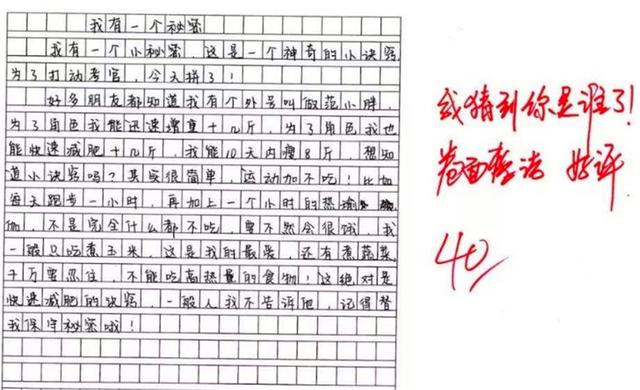 我有一个秘密
我有一个小秘密，这是一个神奇的小诀窍，
为了打动考官，今天拼了！
好多朋友都知道我有个外号叫做范小胖，
为了角色我能迅速增重十几斤，为了角色我也
能快速减肥十几斤，我能10天内瘦8斤，想知
道小诀窍吗？其实很简单，运动加不吃！比如
每天跑步一小时，再加上一个小时的热瑜
伽，不是完全什么都不吃，要不然会很饿，我
一般只吃煮玉米，这是我的最爱，还有煮蔬菜，
千万要忍住，不能吃高热量的食物！这绝对是
快速减肥的诀窍，一般人我不告诉他，记得替
我保守秘密哦！
我猜到你是谁了！
卷面整洁 好评
40